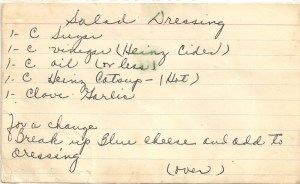 Salad Dressing
1- C Sugar
1- C vinegar (Heinz Cider)
1- C oil (or less)
1- C Heinz Catsup - (Hot)
1- Clove Garlic
for a change
Break up Blue cheese and add to
Dressing
(over)